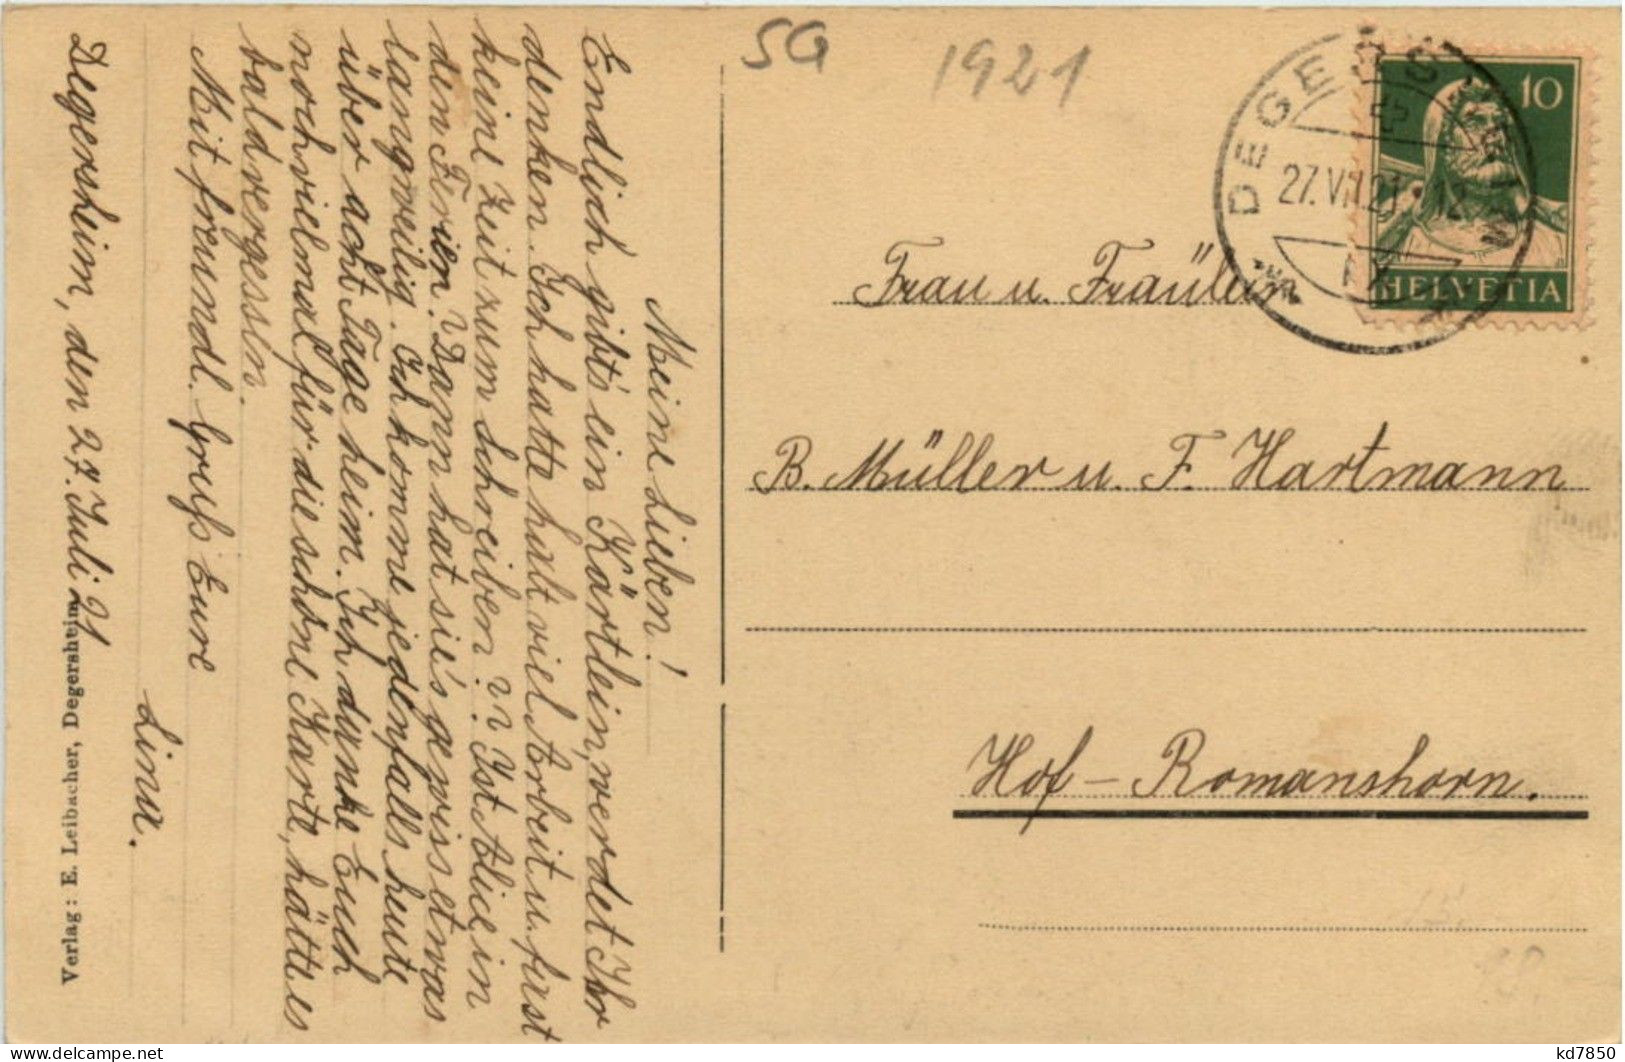 SG
1921
DEGERSHEIM
27.VII.21·12
10
HELVETIA
Frau u. Fräulein
B. Müller u. F. Hartmann
Hof – Romanshorn.
Meine Lieben!
Endlich gibt's ein Kärtlein, werdet Ihr
denken. Ich hatte halt viel Arbeit u. fast
keine Zeit zum schreiben. Ist Alice in
den Ferien? Dann hat sie's gewiss etwas
langweilig. Ich komme jedenfalls heute
über acht Tage heim. Ich danke Euch
noch vielmal für die schöne Karte, hätte es
bald vergessen.
Mit freundl. Gruss Eure
Lina.
Degersheim, den 27. Juli 21
Verlag: E. Leibacher, Degersheim
kd7850